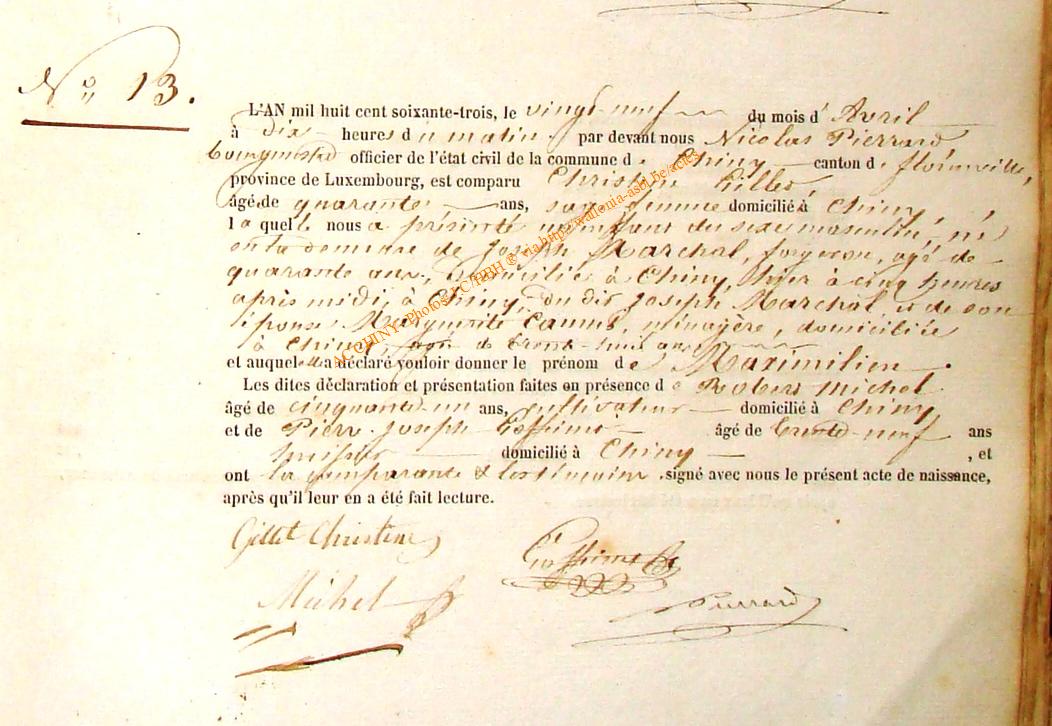 No 13.
L'AN mil huit cent soixante-trois, le vingt-neuf du mois d' Avril
à dix heures du matin, par devant nous Nicolas Pierrard,
bourgmestre officier de l'état civil de la commune de Chiny canton de florenville,
province de Luxembourg, est comparu Christine Gillet,
âgé de quarante ans, sage femme domicilié à Chiny,
laquelle nous a présenté un enfant du sexe masculin, né
en la demeure de Joseph Marchal, forgeron, agé de
quarante ans, domicilié à Chiny, hier à cinq heures
après midi, à Chiny, du dit Joseph Marchal et de son
épouse Marguerite Camus, ménagère, domiciliée
à Chiny, agée de trente-huit ans
et auquel elle a déclaré vouloir donner le prénom de Maximilien.
Les dites déclaration et présentation faites en présence de Robert Michel
âgé de cinquante-un ans, cultivateur domicilié à Chiny,
et de Pierre-Joseph Goffinet âgé de trente-neuf ans
domicilié à Chiny, et
ont la comparante & les témoins signé avec nous le présent acte de naissance,
après qu'il leur en a été fait lecture.
Gillet Christine
Goffinet
Michel
Pierrard
AC CHINY - Photos LC/TBH ® via http://wallonia-asbl.be/actes